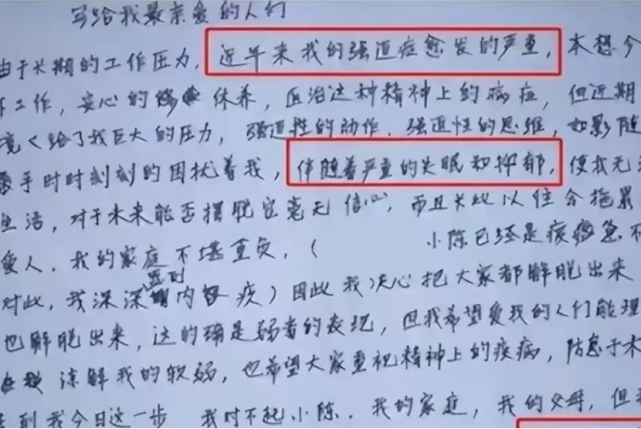 写给我最亲爱的人们
由于长期的工作压力，近年来我的强迫症愈发的严重，本想今
工作，安心的休养，医治这种精神上的病症，但近期
境又给了我巨大的压力，强迫性的动作，强迫性的思维，如影随
乎时时刻刻的困扰着我，伴随着严重的失眠和抑郁，使我无
生活，对于未来能否摆脱它毫无信心，而且长此以往会拖累
爱人，我的家庭不堪重负，（ 小陈已经是疲惫不
对此，我深深感到内疚）因此我决心把大家都解脱出来
也解脱出来，这的确是弱者的表现，但我希望爱我的人们能理
谅解我的软弱，也希望大家重视精神上的疾病，防患于未
到我今日这一步 我对不起小陈，我的家庭，我的父母，但我